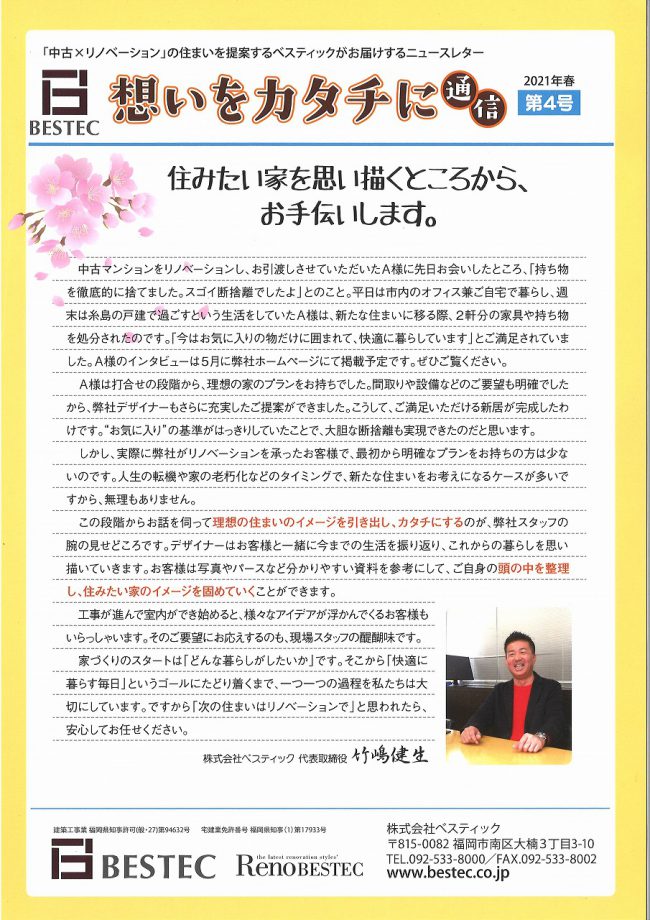 「中古×リノベーション」の住まいを提案するベスティックがお届けするニュースレター
BESTEC
想いをカタチに通信
2021年春
第4号
住みたい家を思い描くところから、
お手伝いします。
中古マンションをリノベーションし、お引渡しさせていただいたA様に先日お会いしたところ、「持ち物
を徹底的に捨てました。スゴイ断捨離でしたよ」とのこと。平日は市内のオフィス兼ご自宅で暮らし、週
末は糸島の戸建で過ごすという生活をしていたA様は、新たな住まいに移る際、2軒分の家具や持ち物
を処分されたのです。「今はお気に入りの物だけに囲まれて、快適に暮らしています」とご満足されていま
した。A様のインタビューは5月に弊社ホームページにて掲載予定です。ぜひご覧ください。
A様は打合せの段階から、理想の家のプランをお持ちでした。間取りや設備などのご要望も明確でした
から、弊社デザイナーもさらに充実したご提案ができました。こうして、ご満足いただける新居が完成したわ
けです。“お気に入り”の基準がはっきりしていたことで、大胆な断捨離も実現できたのだと思います。
しかし、実際に弊社がリノベーションを承ったお客様で、最初から明確なプランをお持ちの方は少な
いのです。人生の転機や家の老朽化などのタイミングで、新たな住まいをお考えになるケースが多いで
すから、無理もありません。
この段階からお話を伺って理想の住まいのイメージを引き出し、カタチにするのが、弊社スタッフの
腕の見せどころです。デザイナーはお客様と一緒に今までの生活を振り返り、これからの暮らしを思い
描いていきます。お客様は写真やパースなど分かりやすい資料を参考にして、ご自身の頭の中を整理
し、住みたい家のイメージを固めていくことができます。
工事が進んで室内ができ始めると、様々なアイデアが浮かんでくるお客様も
いらっしゃいます。そのご要望にお応えするのも、現場スタッフの醍醐味です。
家づくりのスタートは「どんな暮らしがしたいか」です。そこから「快適に
暮らす毎日」というゴールにたどり着くまで、一つ一つの過程を私たちは大
切にしています。ですから「次の住まいはリノベーションで」と思われたら、
安心してお任せください。
株式会社ベスティック 代表取締役 竹嶋健生
建築工事業 福岡県知事許可(般・27)第94632号 宅建業免許番号 福岡県知事(1)第17933号
BESTEC
the latest renovation styles'
RENOBESTEC
株式会社ベスティック
〒815-0082 福岡市南区大楠3丁目3-10
TEL.092-533-8000／FAX.092-533-8002
www.bestec.co.jp